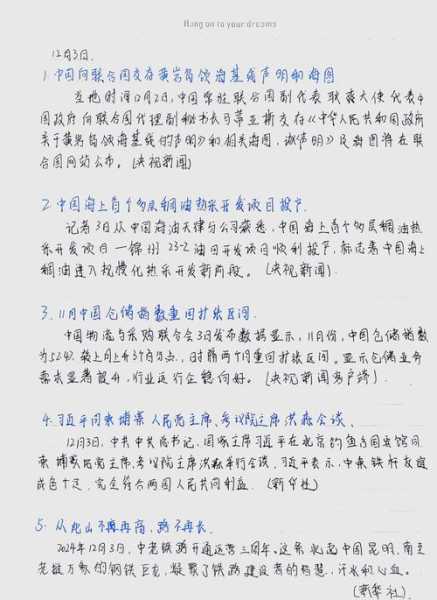 Hang on to your dreams
12月3日.
1.中国向联合国交存黄岩岛领海基线声明和海图
当地时间12月2日,中国常驻联合国副代表耿爽大使代表中
国政府向联合国代理副秘书长 交存《中华人民共和国政府
关于黄岩岛领海基线的声明》和相关海图,该《声明》及海图将在联
合国网站公布。(央视新闻)
2.中国海上首个多层稠油热采开发项目投产.
记者3日从中国海油天津分公司获悉,中国海上首个多层稠油热
采开发项目—锦州23-2油田开发项目顺利投产,标志着中国海上
稠油进入规模化热采开发新阶段。(央视新闻).
3.11月中国仓储指数重回扩张区间.
中国物流与采购联合会3日发布数据显示,11月份,中国仓储指数
为52%,较上月上升 个百分点,时隔两个月重回扩张区间。显示仓储业务
需求显著提升,行业运行企稳向好。(央视新闻客户端).
4.习近平同柬埔寨人民党主席、参议院主席洪森会谈.
12月3日,中共中央总书记、国家主席习近平在北京钓鱼台国宾馆同
柬埔寨人民党主席、参议院主席洪森举行会谈.习近平表示,中柬铁杆友谊
成色十足,完全符合两国人民共同利益.(新华社)
5.从此山不再再高,路不再长.
2024年12月3日,中老铁路开通运营三周年。这条北起中国昆明,南至
老挝万象的钢铁巨龙,凝聚了铁路建设者的智慧、汗水和心血。
(新华社).